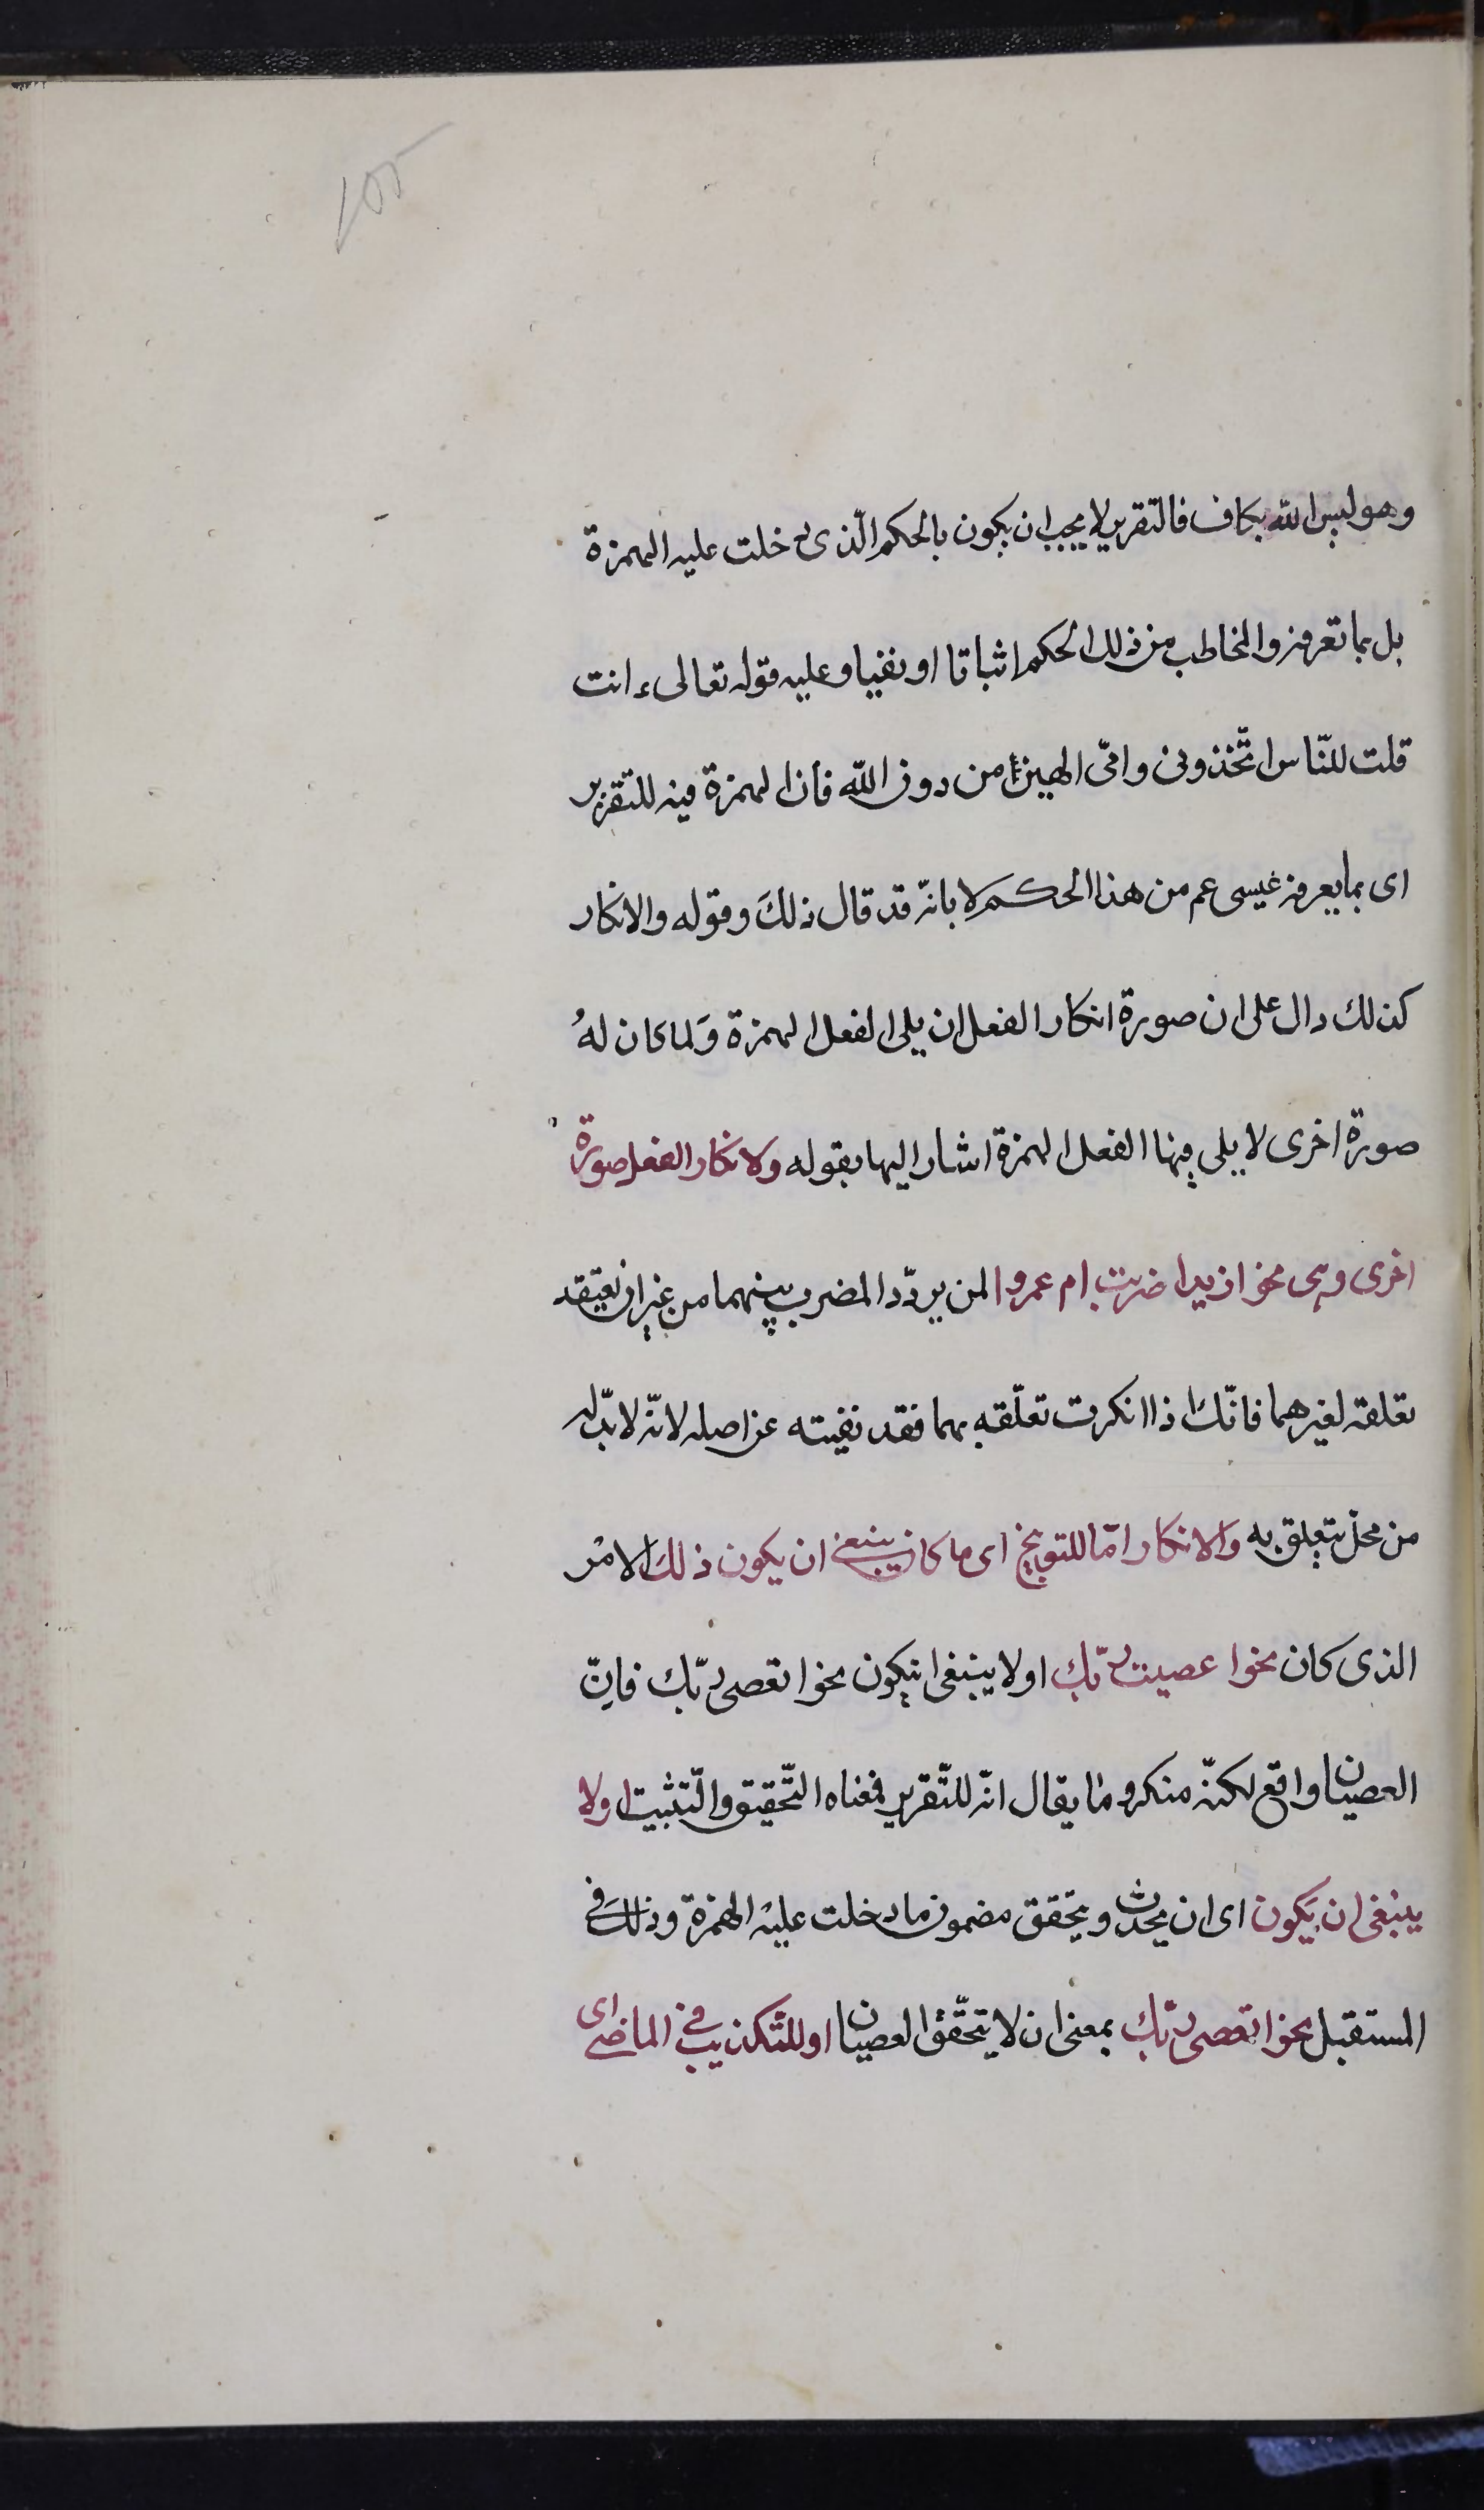 ١٥٥
وهو ليس الله بكاف فالتقرير لا يجب ان يكون بالحكم الّذى دخلت عليه الهمزة
بل بما تعرفه والمخاطب من ذلك الحكم اثباتا او نفيا وعليه قوله تعالى ءانت
قلت للنّاس اتّخذونى وامّى الهين من دون الله فان الهمزة فيه للتقرير
اى بما يعرفه عيسى عم من هذا الحكم لا بانّه قد قال ذلكَ وقوله والانكار
كذلك دال على ان صورة انكار الفعل ان يلى الفعل الهمزة وَلما كان لهُ
صورة اخرى لا يلى فيها الفعل الهمزة اشار اليها بقوله ولانكار الفعل صورة
اخرى وهى نحو ازيدا ضربت ام عمروا لمن يردّد المضرب بينهما من غير ان تعيقد
تعلقه لغيرهما فانّك اذا انكرت تعلّقه بهما فقد نفيته عن اصله لانّه لا بدّ له
من محل يتعلق به والانكار امّا للتوبيخ اى ما كان ينبغى ان يكون ذلكَ الامْر
الذى كان نحوا عصيت ربّك اولا ينبغى ان يكون نحوا تعصى ربّك فانّ
العصيان واقع لكنّه منكر وما يقال انّه للتّقرير فمعناه التّحقيق والتّثبيت اولا
ينبغى ان يَكون اى ان يحدث ويتحقق مضمون ما دخلت عليْه الهمزة وذلكَ فى
المستقبل نحوا تعصى ربّك بمعنى ان لا يتحّقق العصيان او للتّكذيب فى الماضى اى